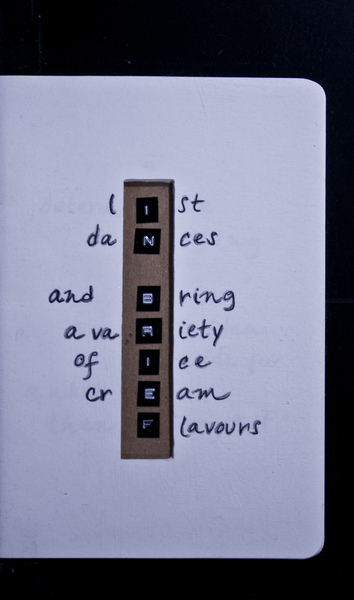 lIst
daNces
and Bring
a vaRiety
of Ice
crEam
Flavours